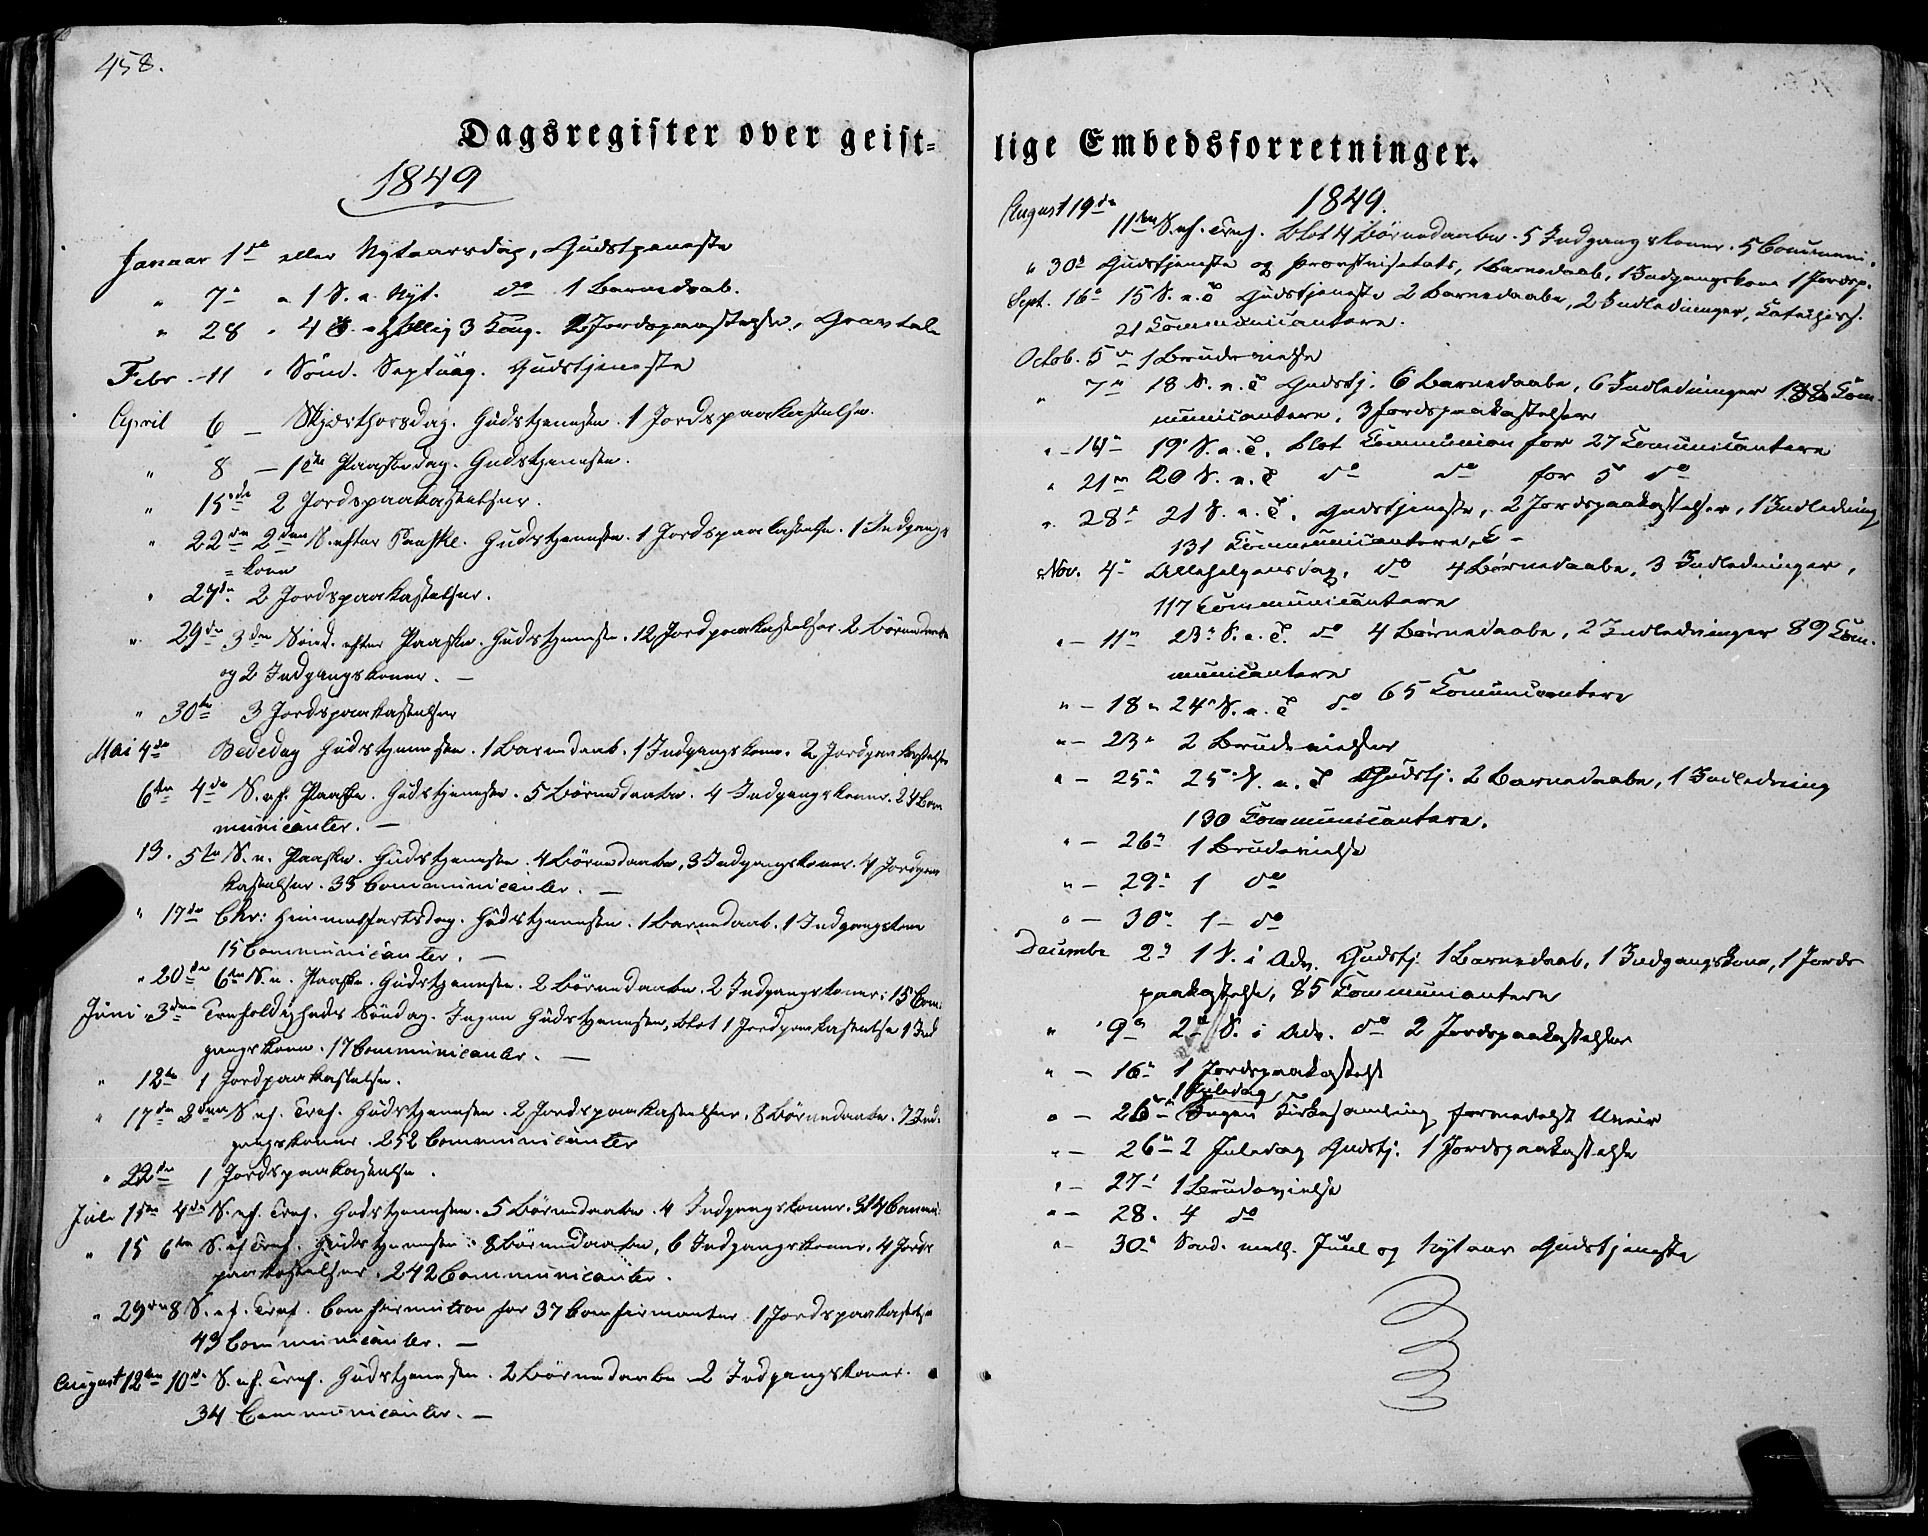 458.
Dagsregister over geist-
1849
Januar 1ste eller Nytaarsdag, Gudstjeneste
" 7de " 1 S. e. Nyt. do 1 Barnedaab.
" 28 " 4 S. Hellig 3 Kong. 2 Jordspaakastelser, Gravtale
Febr. - 11 " Sönd. Septuag. Gudstjeneste
April 6 — Skjærthorsdag. Gudstjeneste. 1 Jordspaakastelse.
" 8 — 1ste Paaskedag. Gudstjeneste.
" 15de 2 Jordspaakastelser.
" 22de 2den S. efter Paaske. Gudstjeneste. 1 Jordspaakastelse. 1 Indgangs
= kone
" 27de 2 Jordspaakastelser.
" 29de 3die Sönd. efter Paaske. Gudstjeneste. 12 Jordpaakastelser. 2 Börnedaabe
og 2 Indgangskoner. —
" 30te 3 Jordspaakastelser
Mai 4de Bededag Gudstjeneste. 1 Barnedaab. 1 Indgangskone. 2 Jordpaakastelser
6te 4de S. ef. Paaske. Gudstjeneste. 5 Börnedaabe. 4 Indgangskoner. 24 Com
municanter. —
13. 5te S. e. Paaske. Gudstjeneste. 4 Börnedaabe, 3 Indgangskoner. 4 Jordpaa
kastelser. 38 Communicanter. —
" 17de Chr: Himmelfartsdag. Gudstjeneste. 1 Barnedaab. 1 Indgangskone
15 Communicanter. —
" 20de 6te S. e. Paaske. Gudstjeneste. 2 Börnedaabe. 2 Indgangskoner. 15 Com:
Juni 3die Trefoldigheds Söndag. Ingen Gudstjeneste, blot 1 Jordpaakastelse 1 Ind
gangskone. 17 Communicanter. —
" 12te 1 Jordpaakastelse.
" 17de 2den S. ef. Tref. Gudstjeneste. 2 Jordspaakastelser. 8 Börnedaabe. 7 Ind
gangskoner. 252 Communicanter
" 22de 1 Jordspaakastelse.
Juli 1ste 4de S. ef. Tref. Gudstjeneste. 5 Börnedaabe. 4 Indgangskoner. 314 Commu:
" 15 6te S. ef. Tref. Gudstjeneste. 8 Börnedaabe, 6 Indgangskoner, 4 Jords
paakastelser. 242 Communicanter.
" 29de 8 S. ef. Tref. Confirmation for 37 Confirmanter. 1 Jordspaakastelse
43 Communicanter. —
August 12te 10de S. ef. Tref. Gudstjeneste. 2 Börnedaabe 2 Indgangskoner.
34 Communicanter. —
lige Embedsforretninger.
1849.
August 19de
11te S. ef. Tref. blot 4 Börnedaabe. 5 Indgangskoner. 5 Communi.
" 30 Gudstjeneste og Provstevisitats, 1 Barnedaab, 1 Indgangskone 1 Jordsp.
Sept. 16 15 S. e. T Gudstjeneste 2 Barnedaabe, 2 Indledninger, Catechis.
21 Communicantere.
Octob. 5 1 Brudevielse
" 7 18 S. e. T Gudstj. 6 Barnedaabe, 6 Indledninger 188 Com
municantere, 3 Jordspaakastelser
" - 14 19 S. e. T. blot Communion for 27 Comunicantere
" 21 20 S. e. T do do for 5 do
" 28 21 S. e. T. Gudstjeneste, 2 Jordspaakastelser, 1 Indledning
131 Communicantere, C -
Nov. 4 Allehelgensdag, do 4 Børnedaabe, 3 Indledninger,
117 Communicantere
" - 11 23 S. e. T. do 4 Børnedaabe, 2 Indledninger 89 Com-
municantere
" - 18 24 S. e. T do 65 Comunicantere
" - 23 2 Brudevielser
" - 25 25 S. e. T Gudstj. 2 Barnedaabe, 1 Indledning
130 Communicantere.
" - 26 1 Brudevielse
" - 29 1 do
" - 30 1 - do
Decembe 2 1 S. i Adv. Gudstj. 1 Barnedaab, 1 Indgangskone, 1 Jords
paakastelse, 85 Communicantere
" " 9 2 S. i Adv. do 2 Jordspaakastelser
" - 16 1 Jordspaakastelse
1 Juledag
" - 26 Ingen Kirkesamling formedelst Uveir
" - 26 2 Juledag Gudstj. 1 Jordspaakastelse
" - 27 1 Brudevielse
" - 28. 4 do
" - 30 Sönd. mell. Juul og Nytaar Gudstjeneste